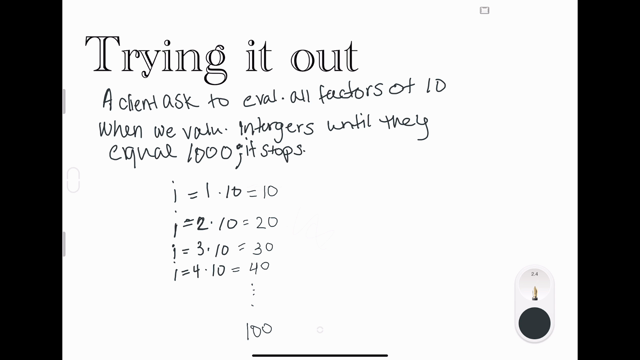 Trying it out
A client ask to eval. all factors of 10
When we valu. intergers until they
equal 1000; it stops.
i = 1 · 10 = 10
i = 2 · 10 = 20
i = 3 · 10 = 30
i = 4 · 10 = 40
100
2.4